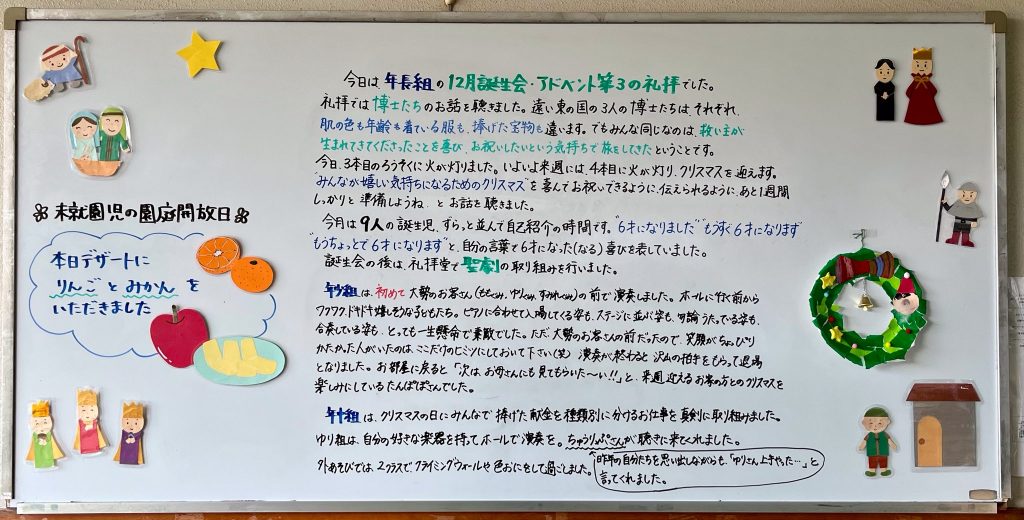 今日は 年長組の12月誕生会・アドベント第3の礼拝でした。
礼拝では博士たちのお話を聴きました。遠い東の国の3人の博士たちは、それぞれ、
肌の色も年齢も着ている服も、捧げた宝物も違います。でもみんな同じなのは、救い主が
生まれてきてくださったことを喜び、お祝いしたいという気持ちで旅をしてきたということです。
今日、3本目のろうそくに火が灯りました。いよいよ来週には、4本目に火が灯り、クリスマスを迎えます。
"みんなが嬉しい気持ちになるためのクリスマス"を喜んでお祝いできるように、伝えられるように、あと1週間
しっかりと準備しようね、とお話を聴きました。
今月は9人の誕生児、ずらっと並んで自己紹介の時間です。"6才になりました""もうすぐ6才になります"
"もうちょっとで6才になります"と、自分の言葉で6才になった(なる)喜びを表していました。
誕生会の後は、礼拝堂で聖劇の取り組みを行いました。
年少組は、初めて大勢のお客さん(ももぐみ、ゆりぐみ、すみれぐみ)の前で演奏しました。ホールに行く前から
ワクワク、ドキドキ嬉しそうな子どもたち。ピアノに合わせて入場してくる姿も、ステージに並ぶ姿も、うたっている姿も、
合奏している姿も、とっても一生懸命で素敵でした。ただ、大勢のお客さんの前だったので、笑顔がちょっぴり
かたかった人がいたのは、ここだけのヒミツにしておいて下さい(笑) 演奏が終わると沢山の拍手をもらって退場
となりました。お部屋に戻ると「次は、お母さんにも見てもらいた～い!!」と、来週迎えるお家の方とのクリスマスを
楽しみにしているたんぽぽさんでした。
年中組は、クリスマスの日にみんなで捧げた献金を種類別に分けるお仕事を真剣に取り組みました。
ゆり組は、自分の好きな楽器を持ってホールで演奏を。ちゅうりっぷさんが聴きに来てくれました。
外あそびでは、2クラスで、クライミングウォールや色おにをして過ごしました。
昨年の自分たちを思い出しながらも、「ゆりさん上手やった…」と
言ってくれました。
未就園児の園庭開放日
本日デザートに
りんごとみかんを
いただきました